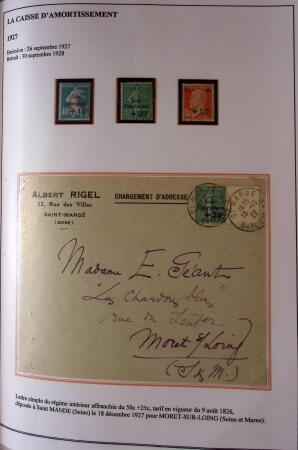 LA CAISSE D'AMORTISSEMENT
1927
Emission : 26 septembre 1927
Retrait : 30 septembre 1928
+10
+25
+50
ALBERT RIGEL
13, Rue des Villas
SAINT-MANDÉ
(SEINE)
CHANGEMENT D'ADRESSE
Madame E. Géant
"Les Chardons bleus"
rue du
Moret s/Loing
(S & M.)
Lettre simple du régime intérieur affranchie du 50c +25c, tarif en vigueur du 9 août 1826,
déposée à Saint MANDE (Seine) le 18 décembre 1927 pour MORET-SUR-LOING (Seine et Marne).